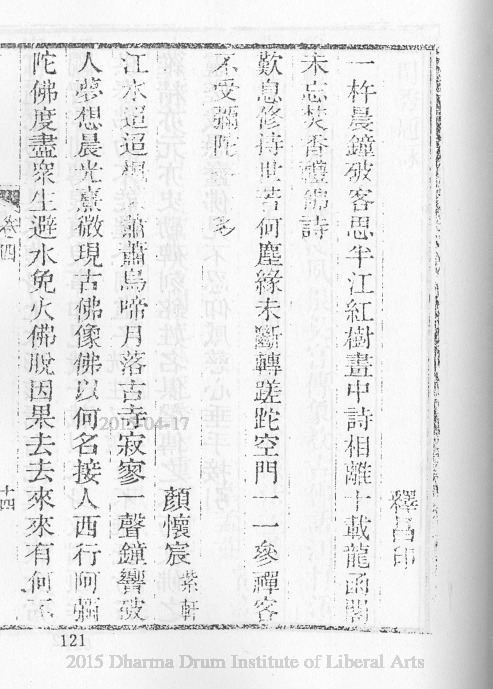 釋昌印
一杵晨鐘破客思半江紅樹畫中詩相離十載龍函閣
未忘焚香禮佛詩
歎息修持世若何塵緣未斷轉蹉跎空門一一參禪客
不受彌陀
顏懷宸 紫軒
江水迢迢楓 蕭蕭烏啼月落古寺寂寥一聲鐘響破
人夢想晨光熹微現古佛像佛以何名接人西行阿彌
陀佛度盡眾生避水免火佛脫因果去去來來有何不
卷四
十四
121
2015-04-17
2015 Dharma Drum Institute of Liberal Arts